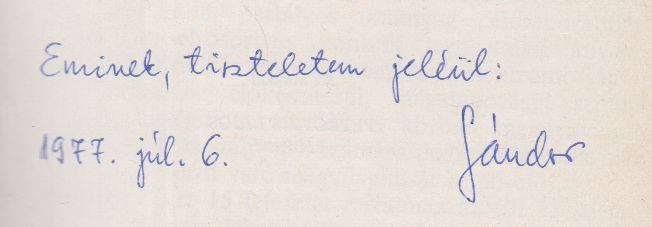 Eminek, tiszteletem jeléül:
1977. júl. 6. Sándor